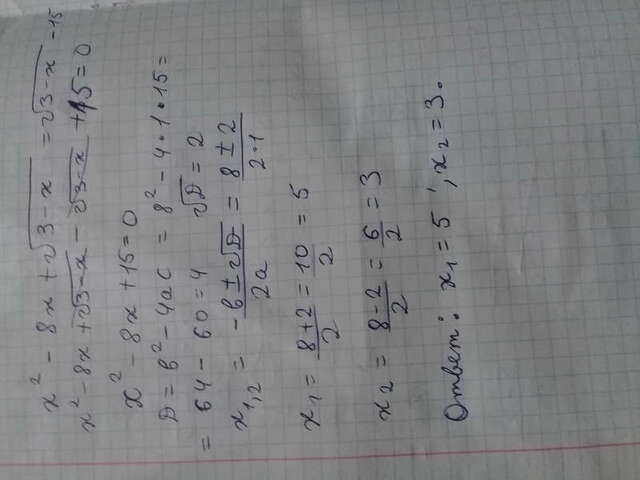 x² - 8x + √3-x = √3-x - 15
x² - 8x + √3-x - √3-x + 15 = 0
x² - 8x + 15 = 0
D = b² - 4ac = 8² - 4·1·15 =
= 64 - 60 = 4 √D = 2
x₁,₂ = -b ± √D / 2a = 8 ± 2 / 2·1
x₁ = 8+2 / 2 = 10 / 2 = 5
x₂ = 8-2 / 2 = 6 / 2 = 3
Ответ: x₁ = 5 ; x₂ = 3.